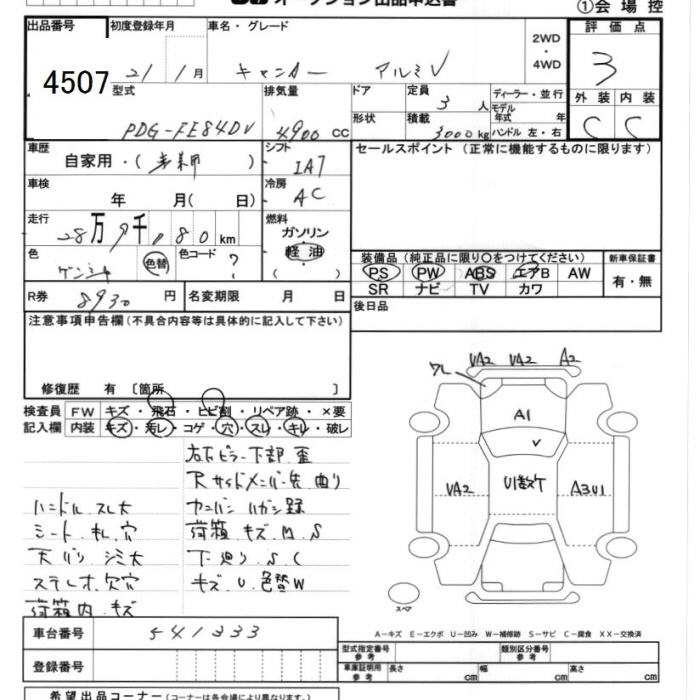 オークション出品申込書
①会場控
出品番号 初度登録年月 車名・グレード 2WD・4WD 評価点
4507 21/1月 キャンター アルミV 3
型式 排気量 ドア 定員 3人 ディーラー・並行
モデル年式 年 外装 内装
PDG-FE84DV 4900cc 形状 積載 3000kg ハンドル 左・右 C C
車歴 自家用・( ) シフト IA7 セールスポイント(正常に機能するものに限ります)
車検 年 月( 日) 冷房 AC
走行 28万9千180km 燃料 ガソリン
色 色替 色コード ? 軽油 ( )
装備品(純正品に限り○をつけてください) 新車保証書
PS PW ABS エアB AW 有・無
SR ナビ TV カワ
R券 8930円 名変期限 月 日 後日品
注意事項申告欄(不具合内容等は具体的に記入して下さい)
修復歴 有 [箇所 ]
検査員記入欄 FW キズ・飛石・ヒビ割・リペア跡・×要
内装 キズ・汚レ・コゲ・穴・スレ・キレ・破レ
右下ピラー下部 歪
Rサイドメンバー先 曲り
ハンドル スレ大
シート キレ 穴
荷箱 キズ M S
天バリ シミ大
下廻り S C
ステレオ欠穴
キズ U 色替W
荷箱内 キズ
VA2 VA2 A2
ワレ
A1
V
VA2 U1数ケ A3U1
スペア
A−キズ E−エクボ U−凹み W−補修跡 S−サビ C−腐食 XX−交換済
車台番号 541333
登録番号
型式指定番号 参考 類別区分番号 参考
車庫証明用 参考 長さ cm 幅 cm 高さ cm
希望出品コーナー(コーナーは各会場により異なります)